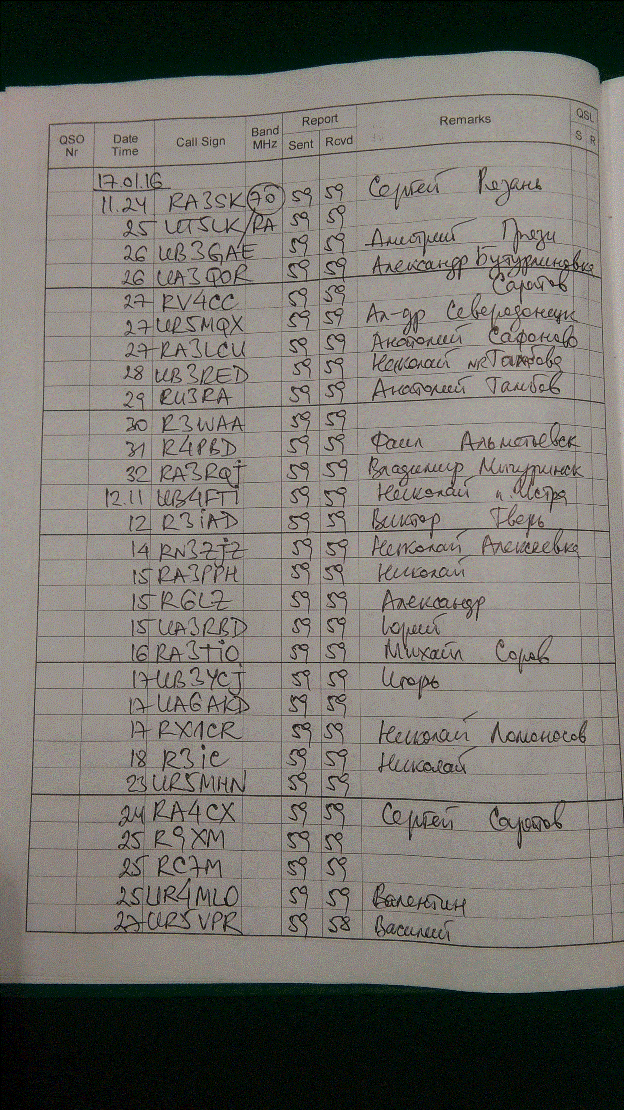 QSO Nr Date Time Call Sign Band MHz Report Sent Rcvd Remarks QSL S R
17.01.16
11.24 RA3SK 70 59 59 Сергей Рязань
25 UT5LK/RA 59 59
26 UB3GAE 59 59 Дмитрий Грязи
26 UA3QOR 59 59 Александр Бутурлиновка
27 RV4CC 59 59 Саратов
27 UR5MQX 59 59 Ал-др Северодонецк
27 RA3LCU 59 59 Анатолий Сафоново
28 UB3RED 59 59 Николай NR Тамбова
29 RU3RA 59 59 Анатолий Тамбов
30 R3WAA 59 59
31 R4PBD 59 59 Фаил Альметьевск
32 RA3RQJ 59 59 Владимир Мичуринск
12.11 UB4FTI 59 59 Николай Истра
12 R3iAD 59 59 Виктор Тверь
14 RN3ZJZ 59 59 Николай Алексеевка
15 RA3PPH 59 59 Николай
15 R6LZ 59 59 Александр
15 UA3RBD 59 59 Юрий
16 RA3TIO 59 59 Михаил Саров
17 UB3YCJ 59 59 Игорь
17 UA6AKD 59 59
17 RX1CR 59 59 Николай Ломоносов
18 R3iC 59 59 Николай
23 UR5MHN 59 59
24 RA4CX 59 59 Сергей Саратов
25 R9XM 59 59
25 RC7M 59 59
25 UR4MLO 59 59 Валентин
27 UR5VPR 59 58 Василий